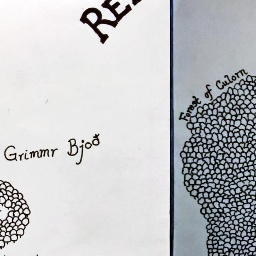 RE
Grimmr Bjoð
Forest of Culorn